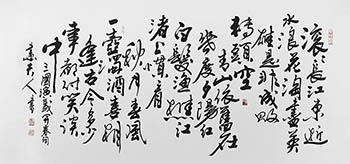 滚滚长江东逝
水浪花淘尽英
雄是非成败
转头空
青山依旧在
几度夕阳红
白发渔樵江
渚上惯看
秋月春风
一壶浊酒喜相
逢古今多少
事都付笑谈
中
三国演义开卷词